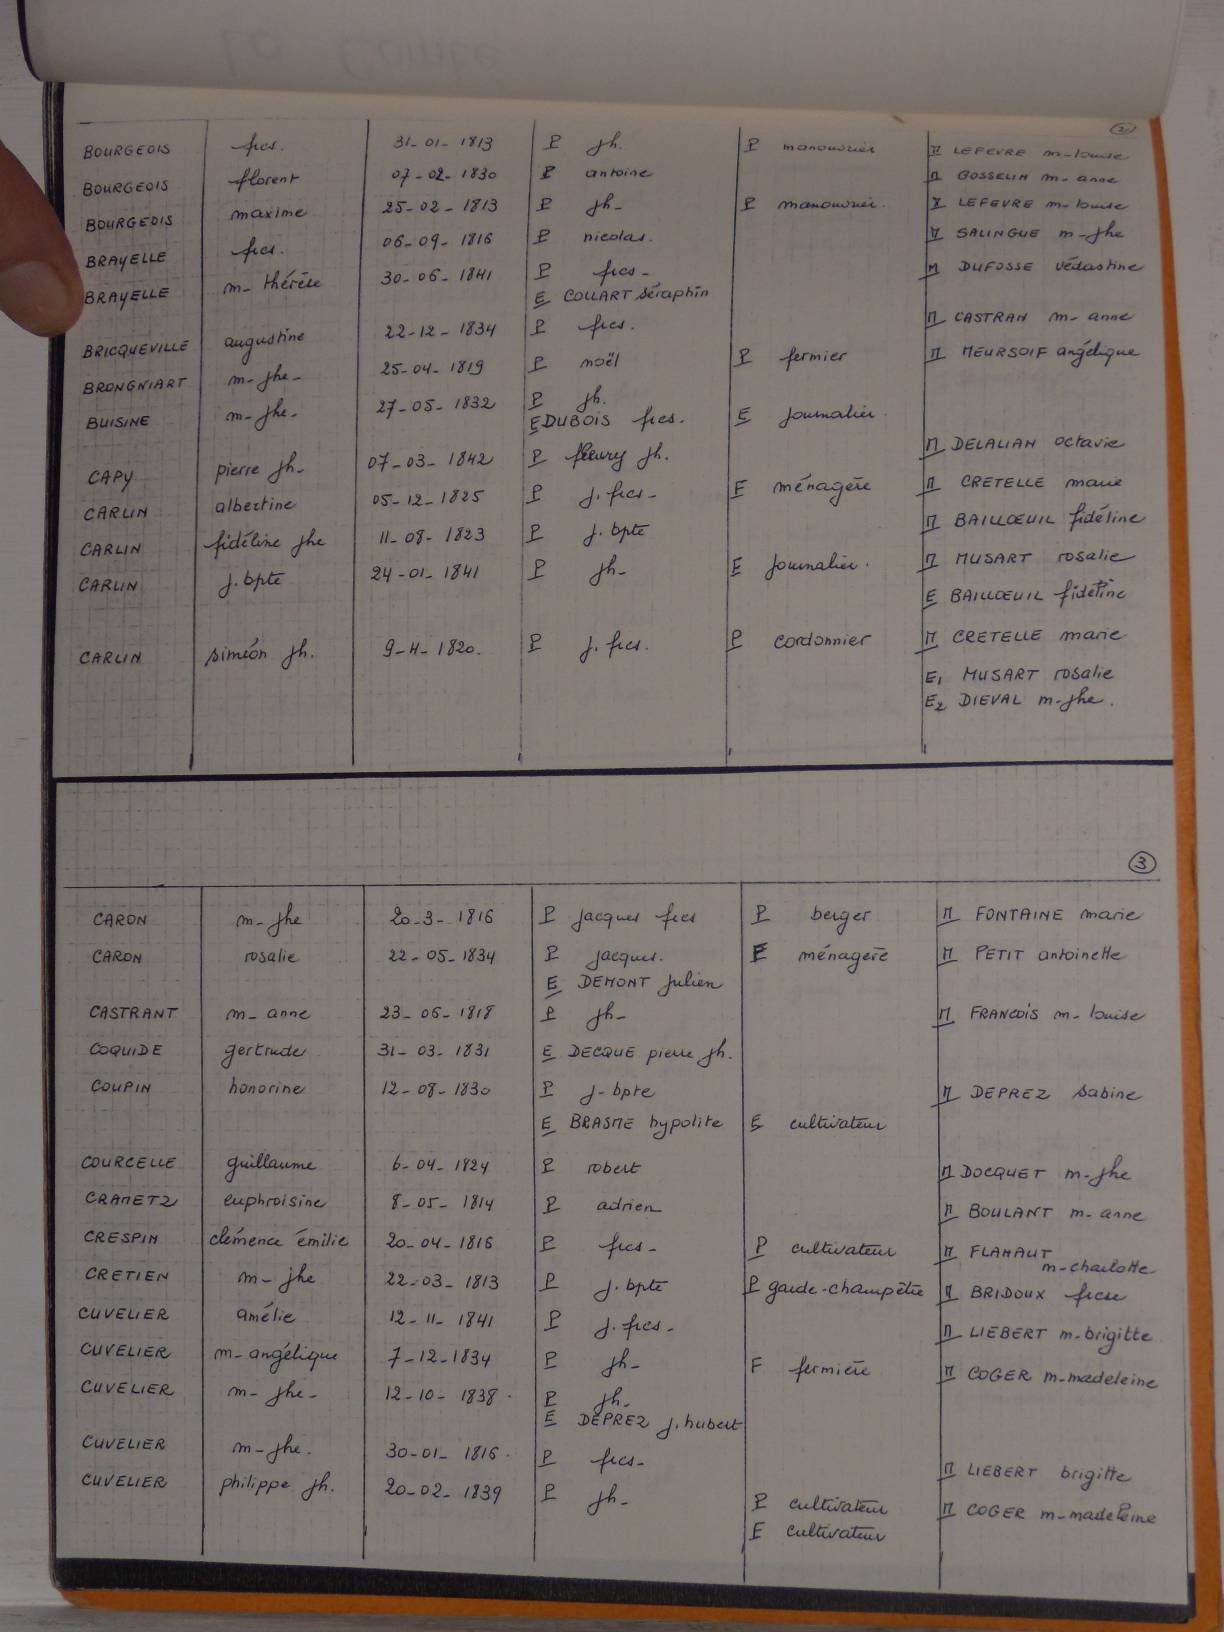 2
BOURGEOIS fcs. 31-01-1813 P jh. P manouvrier M LEFEVRE m-louise
BOURGEOIS florent 07-02-1830 P antoine M GOSSELIN m-anne
BOURGEOIS maxime 25-02-1813 P jh- P manouvrier. M LEFEVRE m-louise
BRAYELLE fcs. 06-09-1816 P nicolas. M SALINGUE m-jhe
BRAYELLE m-thérèse 30-06-1841 P fcs- M DUFOSSE védastine
E COLLART séraphin
BRICQUEVILLE augustine 22-12-1834 P fcs. M CASTRAN m-anne
BRONGNIART m-jhe- 25-04-1819 P noël P fermier M MEURSOIF angélique
BUISINE m-jhe- 27-05-1832 P jh.
E DUBOIS fcs. E journalier.
CAPY pierre jh- 07-03-1842 P fleury jh. M DELALIAN octavie
CARLIN albertine 05-12-1825 P j.fcs- E ménagère M CRETELLE marie
CARLIN fidéline jhe 11-08-1823 P j.bpte M BAILLOEUIL fidéline
CARLIN j.bpte 24-01-1841 P jh- E journalier. M MUSART rosalie
E BAILLOEUIL fidéline
CARLIN siméon jh. 9-4-1820. P j.fcs. P cordonnier M CRETELLE marie
E1 MUSART rosalie
E2 DIEVAL m-jhe.
3
CARON m-jhe 20-3-1816 P jacques fcs P berger M FONTAINE marie
CARON rosalie 22-05-1834 P jacques. E ménagère M PETIT antoinette
E DEMONT julien
CASTRANT m-anne 23-06-1818 P jh- M FRANCOIS m-louise
COQUIDE gertrude 31-03-1831 E DECQUE pierre jh.
COUPIN honorine 12-08-1830 P j-bpte M DEPREZ sabine
E BRASME hypolite E cultivateur
COURCELLE guillaume 6-04-1824 P robert M DOCQUET m-jhe
CRAMETZ euphroisine 8-05-1814 P adrien M BOULANT m-anne
CRESPIN clémence émilie 20-04-1816 P fcs- P cultivateur M FLAHAUT
m-charlotte
CRETIEN m-jhe 22-03-1813 P j.bpte P garde-champêtre M BRIDOUX fcse
CUVELIER amélie 12-11-1841 P j.fcs- M LIEBERT m-brigitte
CUVELIER m-angélique 7-12-1834 P jh- E fermière M COGER m-madeleine
CUVELIER m-jhe- 12-10-1838. P jh-
E DEPREZ j.hubert
CUVELIER m-jhe. 30-01-1816. P fcs- M LIEBERT brigitte
CUVELIER philippe jh. 20-02-1839 P jh- P cultivateur M COGER m-madeleine
E cultivateur